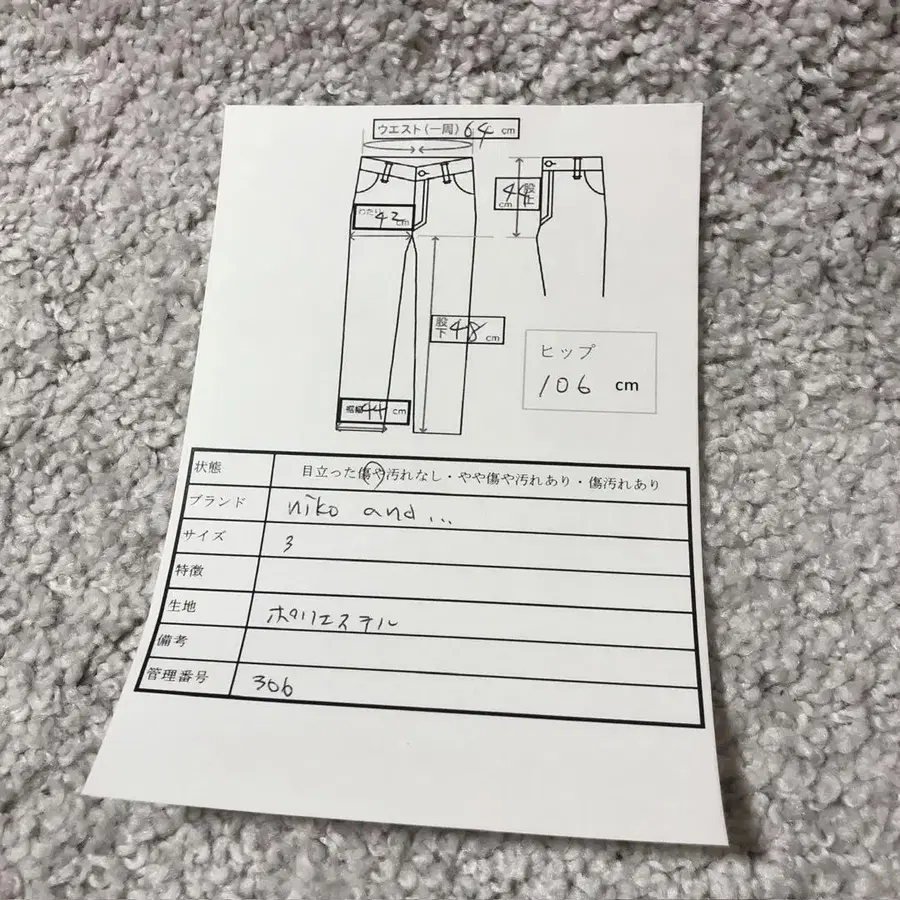 ウエスト(一周) 64 cm
44 cm 股上
わたり 42 cm
股下 48 cm
ヒップ
106 cm
裾幅 44 cm
状態 目立った傷や汚れなし・やや傷や汚れあり・傷汚れあり
ブランド niko and ...
サイズ 3
特徴
生地 ポリエステル
備考
管理番号 306